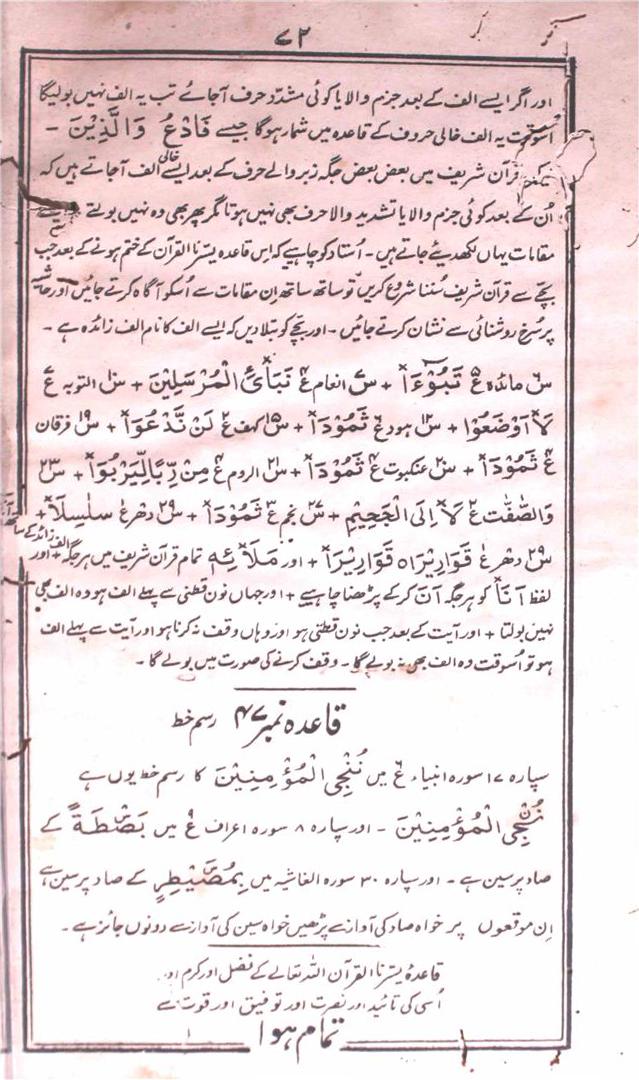 ۷۲
اور اگر ایسے الف کے بعد جزم والا یا کوئی مشدد حرف آجائے تب یہ الف نہیں بولیگا
اسوقت یہ الف خالی حروف کے قاعدہ میں شمار ہوگا جیسے فَادْعُ وَالَّذِيْنَ -
قرآن شریف میں بعض بعض جگہ زبر والے حرف کے بعد ایسے خالی الف آجاتے ہیں کہ
اُن کے بعد کوئی جزم والا یا تشدید والا حرف بھی نہیں ہوتا مگر پھر بھی وہ نہیں بولتے
مقامات یہاں لکھدیئے جاتے ہیں - اُستاد کو چاہیے کہ اس قاعدہ یسرنا القرآن کے ختم ہونے کے بعد جب
بچے سے قرآن شریف سُننا شروع کریں تو ساتھ ساتھ اِن مقامات سے اُسکو آگاہ کرتے جائیں اور حاشیہ
پر سُرخ روشنائی سے نشان کرتے جائیں - اور بچے کو بتلا دیں کہ ایسے الف کا نام الف زائدہ ہے -
س۶ مائدہ ع۵ تَبُوْٓءَاْ + س۷ انعام ع۴ نَبَاِئ الْمُرْسَلِيْنَ + س۱۰ التوبہ ع۷
لَاْ اَوْضَعُوْا + س۱۲ ہود ع۶ ثَمُوْدَاْ + س۱۵ کہف ع۲ لَنْ نَّدْعُوَاْ + س۱۹ فرقان
ع۴ ثَمُوْدَاْ + س۲۰ عنکبوت ع۴ ثَمُوْدَاْ + س۲۱ الروم ع۴ مِنْ رِّبًا لِّيَرْبُوَاْ + س۲۳
وَالصّٰفّٰت ع۲ لَاْ اِلَى الْجَحِيْمِ + س۲۷ نجم ع۳ ثَمُوْدَاْ + س۲۹ دھر ع۱ سَلٰسِلَاْ +
س۲۹ دھر ع۱ قَوَارِيْرَاْ ہ قَوَارِيْرَاْ + اور مَلَاْئِهٖ تمام قرآن شریف میں ہر جگہ الف زائد کے ساتھ آتا ہے + اور
لفظ اَنَاْ کو ہر جگہ اَنَ کر کے پڑھنا چاہیے + اور جہاں نون قطنی سے پہلے الف ہو وہ الف بھی
نہیں بولتا + اور آیت کے بعد جب نون قطنی ہو اور وہاں وقف نہ کرنا ہو اور آیت سے پہلے الف
ہو تو اُسوقت وہ الف بھی نہ بولے گا - وقف کرنے کی صورت میں بولے گا -
قاعدہ نمبر ۴۷ رسم خط
سپارہ ۱۷ سورہ انبیاء ع۶ میں نُنْجِى الْمُؤْمِنِيْنَ کا رسم خط یوں ہے
نُۨجِى الْمُؤْمِنِيْنَ - اور سپارہ ۸ سورہ اعراف ع۹ میں بَصْۜطَةً کے
صاد پر سین ہے - اور سپارہ ۳۰ سورہ الغاشیہ میں بِمُصَۜيْطِرٍ کے صاد پر سین ہے
اِن موقعوں پر خواہ صاد کی آواز سے پڑھیں خواہ سین کی آواز سے دونوں جائز ہے -
قاعدہ یسرنا القرآن اللہ تعالے کے فضل اور کرم اور
اُسی کی تائید اور نصرت اور توفیق اور قوت سے
تمام ہوا